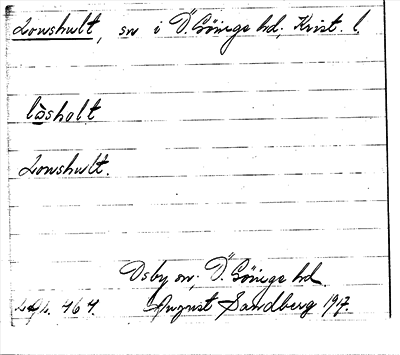 Lönshult, sn i Ö. Göinge hd, Krist. l.
lò̤sholt
Lönshult.
Osby sn, Ö. Göinge hd.
LAL. 464. August Sandberg 1917